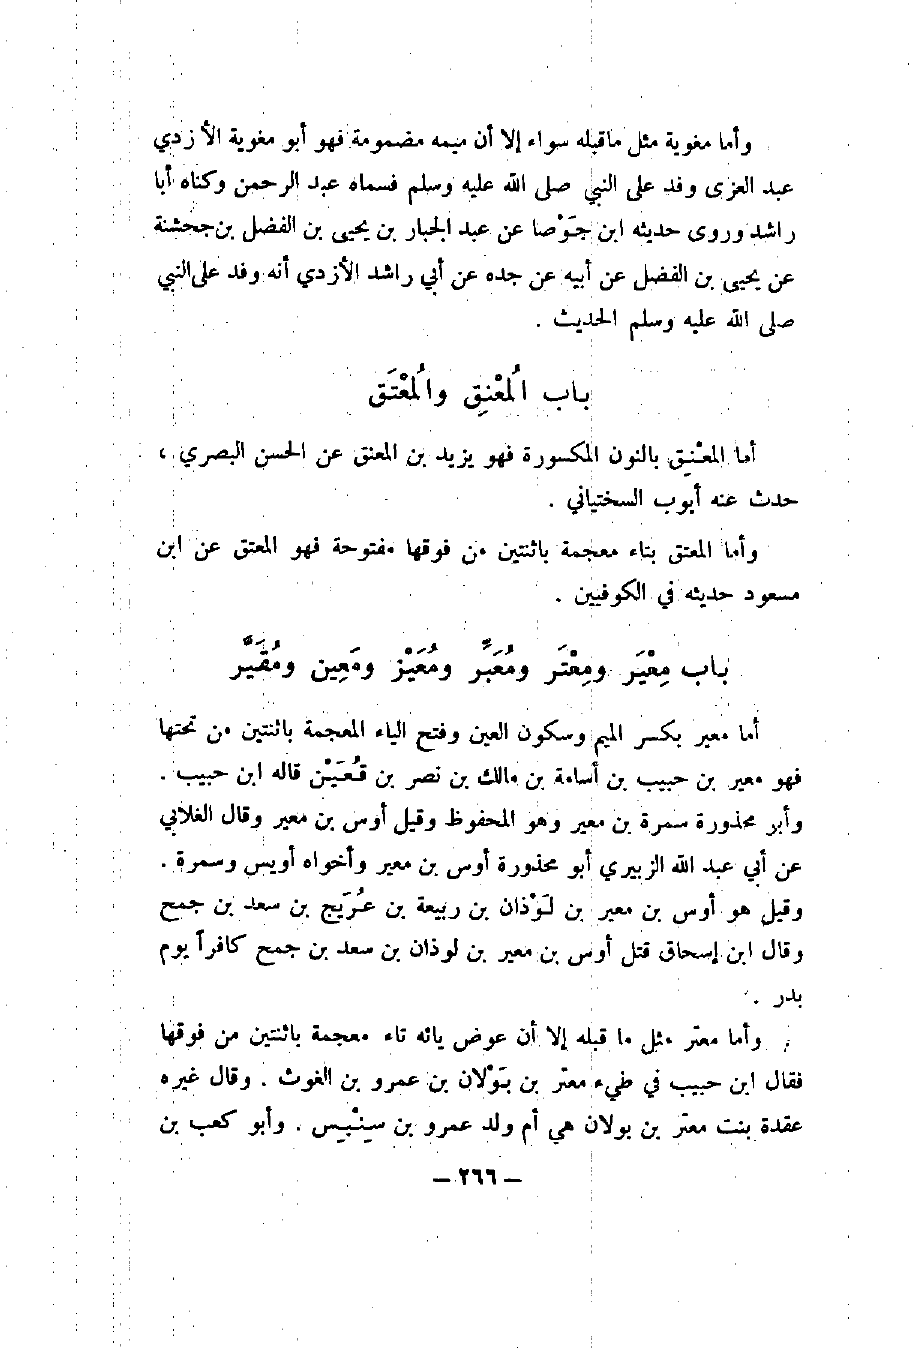 وأما مغوية مثل ماقبله سواء إلا أن ميمه مضمومة فهو أبو مغوية الأزدي
عبد العزى وفد على النبي صلى الله عليه وسلم فسماه عبد الرحمن وكناه أبا
راشد وروى حديثه ابن جَوْصا عن عبد الجبار بن يحيى بن الفضل بن جحشنة
عن يحيى بن الفضل عن أبيه عن جده عن أبي راشد الأزدي أنه وفد على النبي
صلى الله عليه وسلم الحديث .
باب المُعْنِق والمُعْتَق
أما المعْنِق بالنون المكسورة فهو يزيد بن المعنق عن الحسن البصري ،
حدث عنه أيوب السختياني .
وأما المعتق بتاء معجمة باثنتين من فوقها مفتوحة فهو المعتق عن ابن
مسعود حديثه في الكوفيين .
باب مِعْيَر ومِعْتَر ومُعَبَّر ومُعَيْز ومَعِين ومُقَيَّر
أما معير بكسر الميم وسكون العين وفتح الياء المعجمة باثنتين من تحتها
فهو معير بن حبيب بن أسامة بن مالك بن نصر بن قُعَيْن قاله ابن حبيب .
وأبو محذورة سمرة بن معير وهو المحفوظ وقيل أوس بن معير وقال الغلابي
عن أبي عبد الله الزبيري أبو محذورة أوس بن معير وأخواه أويس وسمرة .
وقيل هو أوس بن معير بن لَوْذان بن ربيعة بن عُرَيج بن سعد بن جمح
وقال ابن إسحاق قتل أوس بن معير بن لوذان بن سعد بن جمح كافراً يوم
بدر .
وأما معتر مثل ما قبله إلا أن عوض يائه تاء معجمة باثنتين من فوقها
فقال ابن حبيب في طيء معتر بن بَوْلان بن عمرو بن الغوث . وقال غيره
عقدة بنت معتر بن بولان هي أم ولد عمرو بن سِنْبِس . وأبو كعب بن
— ٢٦٦ —